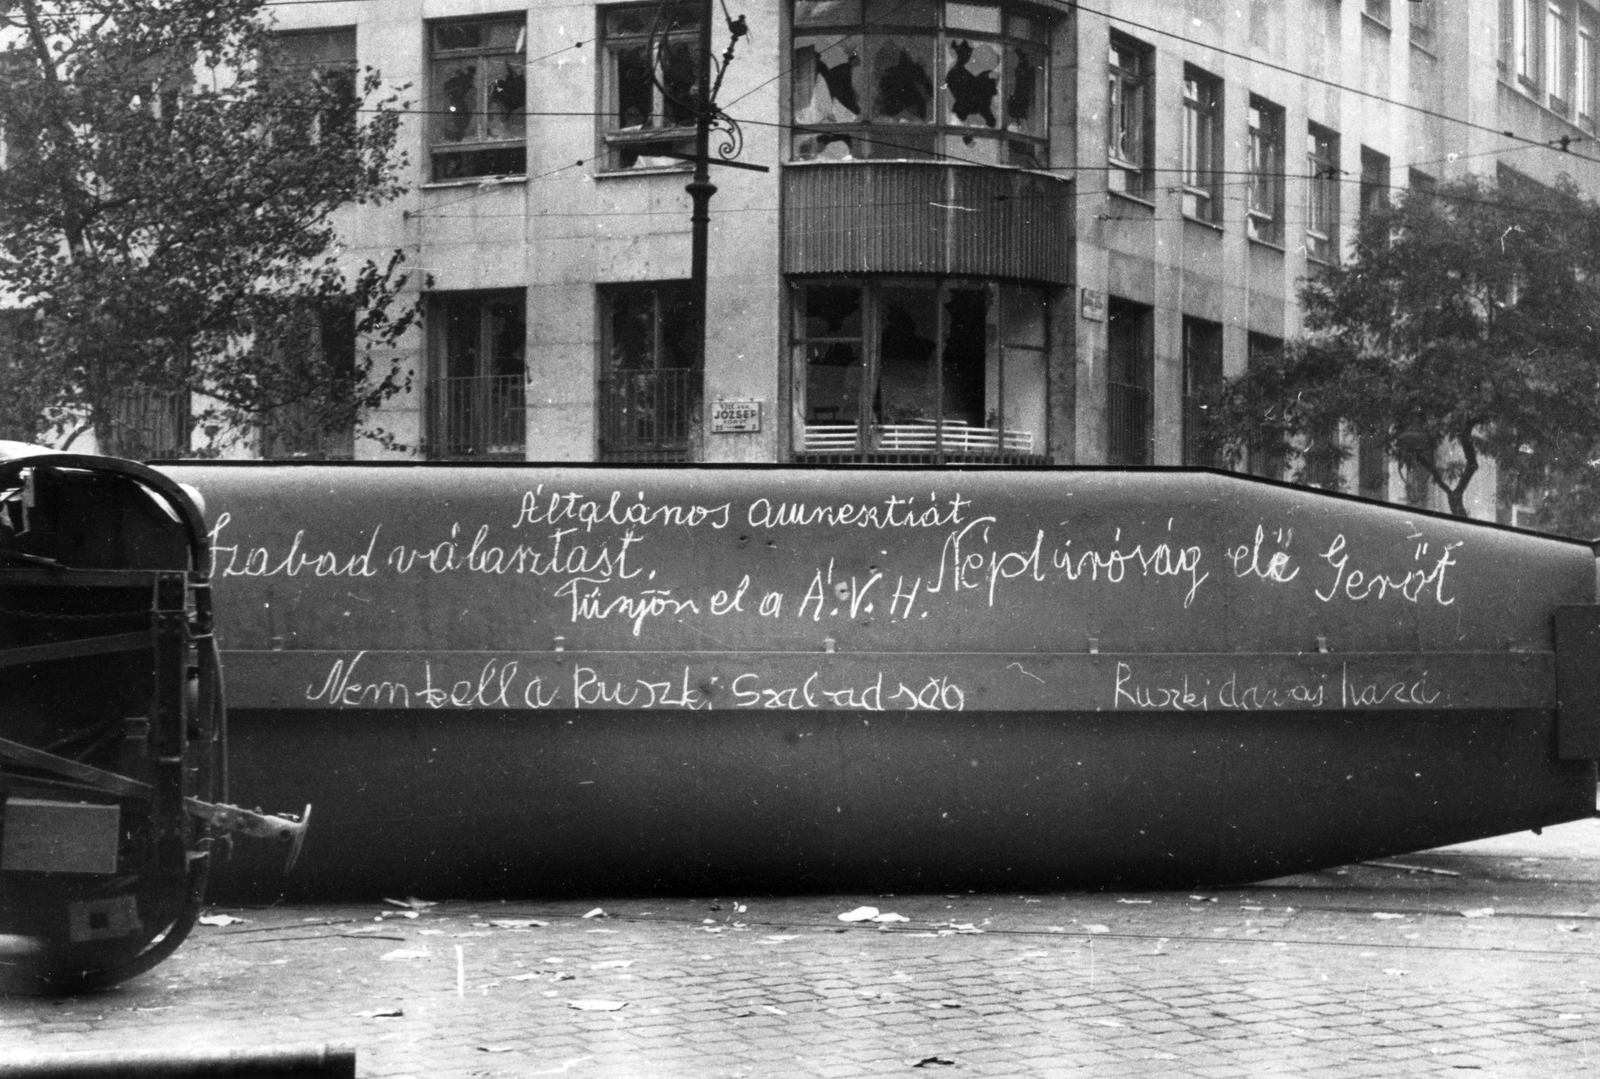 JÓZSEF
Általános amnesztiát
Szabad választást,
Népbíróság elé Gerőt
Tűnjön el a Á.V.H.
Nem kell a Ruszki Szabadság
Ruszki davaj haza